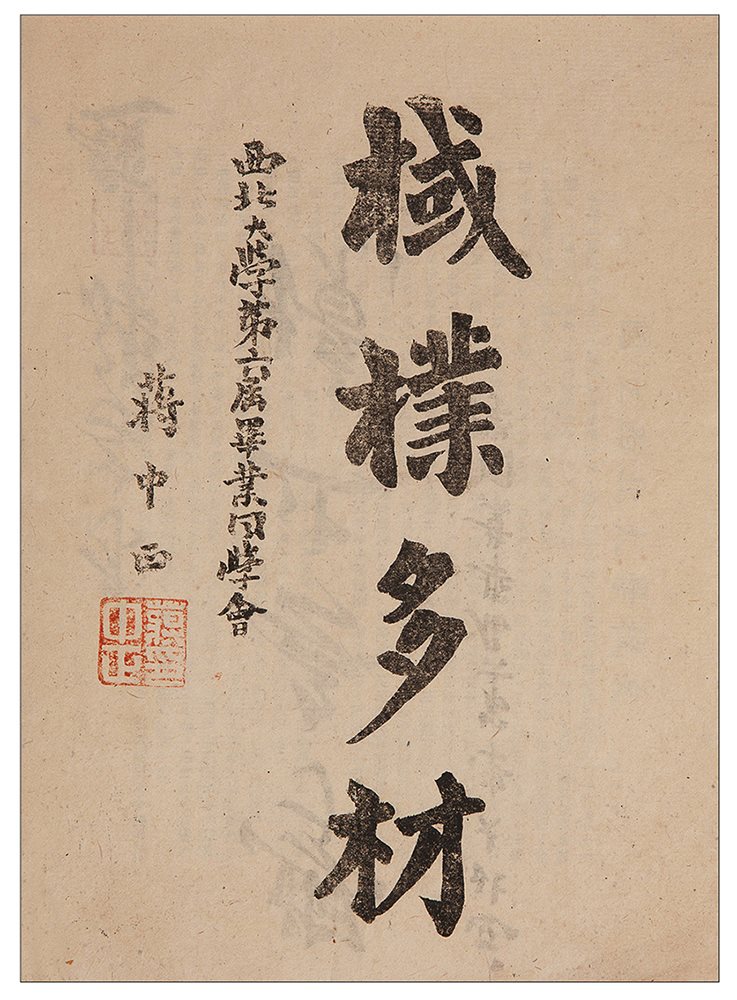 棫樸多材
西北大學第六屆畢業同學會
蔣中正
蔣中正